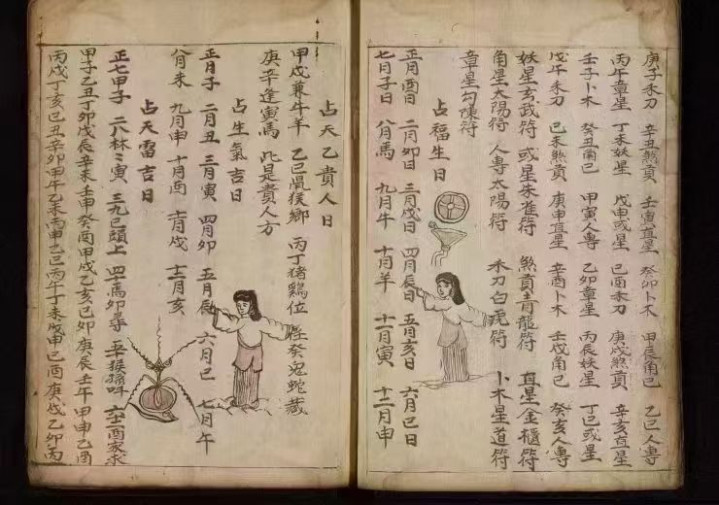 庚子禾刀 辛丑煞貢 壬寅直星 癸卯卜木 甲辰角己 乙巳人專
丙午章星 丁未妖星 戊申或星 己酉禾刀 庚戌煞貢 辛亥直星
壬子卜木 癸丑角己 甲寅人專 乙卯章星 丙辰妖星 丁巳或星
戊午禾刀 己未煞貢 庚申直星 辛酉卜木 壬戌角己 癸亥人專
妖星玄武符 或星朱雀符 煞貢青龍符 直星金櫃符
角星太陽符 人專太陽符 禾刀白虎符 卜木星道符
章星勾陳符
占福生日
正月酉日 二月卯日 三月戌日 四月辰日 五月亥日 六月巳日
七月子日 八月馬 九月牛 十月羊 十一月寅 十二月申
占天乙貴人日
甲戊兼牛羊 乙己鼠猴鄉 丙丁猪鷄位 壬癸兔蛇藏
庚辛逢寅馬 此是貴人方
占生氣吉日
正月子 二月丑 三月寅 四月卯 五月辰 六月巳 七月午
八月未 九月申 十月酉 十一月戌 十二月亥
占天雷吉日
正七甲子 二八林〻寅 三九巳頭上 四十馬卯尋 五
甲子乙丑丁卯戊辰辛未壬申癸酉甲戌乙亥己卯庚辰壬午甲申乙酉
丙戌丁亥己丑辛卯甲午乙未丙申乙巳丙午丁未戊申己酉庚戌乙卯丙